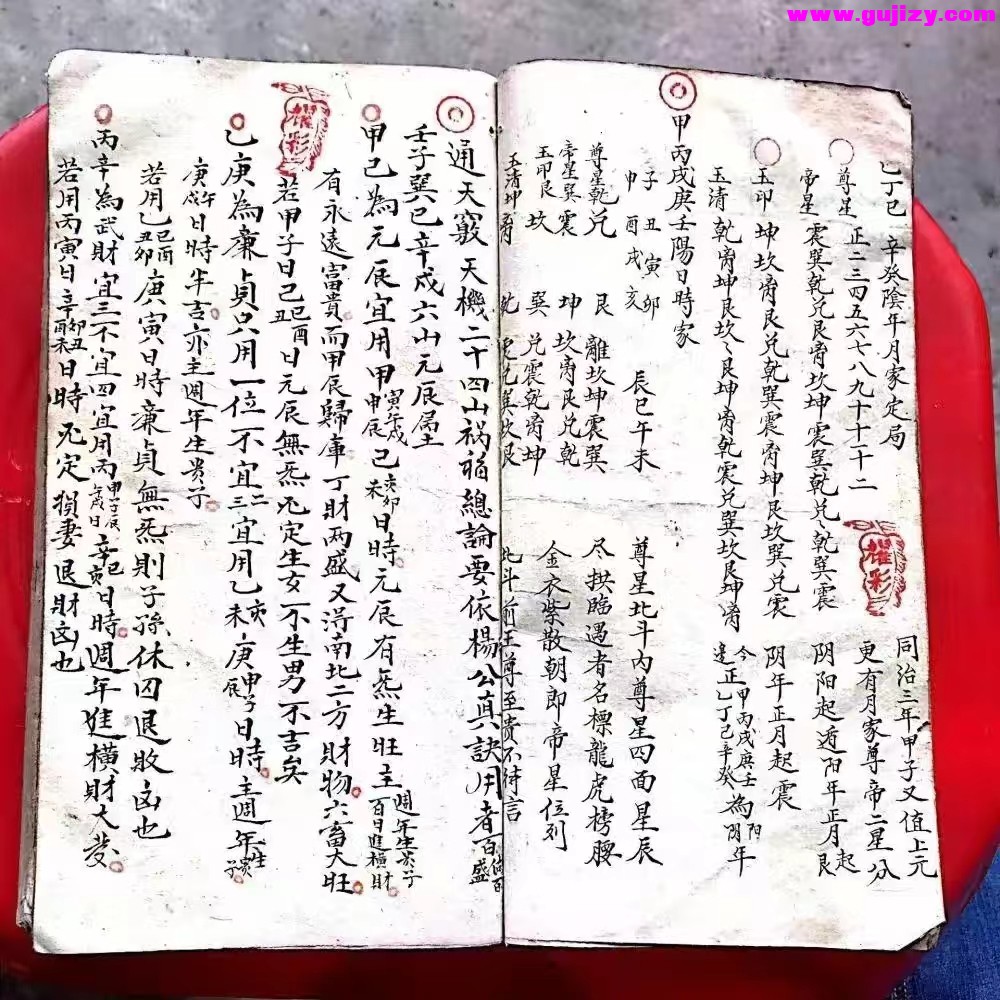 www.gujizy.com
乙丁巳 辛癸陰年月家定局
尊星 正二三四五六七八九十十一十二
帝星 震巽乾兌艮离坎坤震巽乾兌乾巽震
玉印 坤坎离艮兌乾巽震离坤艮坎巽兌震
玉清 乾离坤艮坎艮坤离乾震兌巽坎艮坤离
同治三年甲子又值上元
更有月家尊帝二星分
阴阳起遁阳年正月起艮
阴年正月起震
今甲丙戌庚壬為阳年
逢正乙丁己辛癸為阴年
耀彩
甲丙戌庚壬陽日時家
子丑寅卯 辰巳午未
申酉戌亥
尊星乾兌 艮離坎坤震巽
帝星巽震 坤坎离艮兌乾
玉印艮坎 巽兌震乾离坤
玉清坤离
尊星北斗内尊星四面星辰
尽拱臨遇者名標龍虎榜腰
金衣紫散朝即帝星位列
北斗前王尊至贵不待言
通天竅天機二十四山祸福總論要依楊公真訣用者百
壬子巽巳辛戌六山元辰属土
甲己為元辰宜用甲寅午戌申辰己亥卯未日時元辰有炁生旺主週年生贵子百日進横財
有永遠富貴而甲辰歸庫丁財两盛又淂南北二方財物六畜大旺
若甲子日己巳酉丑日元辰無炁冲定生女不生男不吉矣
耀彩
乙庚為廉貞只用一位不宜二三宜用乙亥未庚申子辰日時主週年生贵子
庚戌午日時半吉亦主週年生贵子
若用乙巳酉丑卯庚寅日時廉貞無炁則子孫休囚退敗凶也
丙辛為武財宜三不宜四宜用丙申子辰午戌日辛巳亥日時週年進横財大發
若用丙寅日辛卯丑酉未日時冲定损妻退財凶也